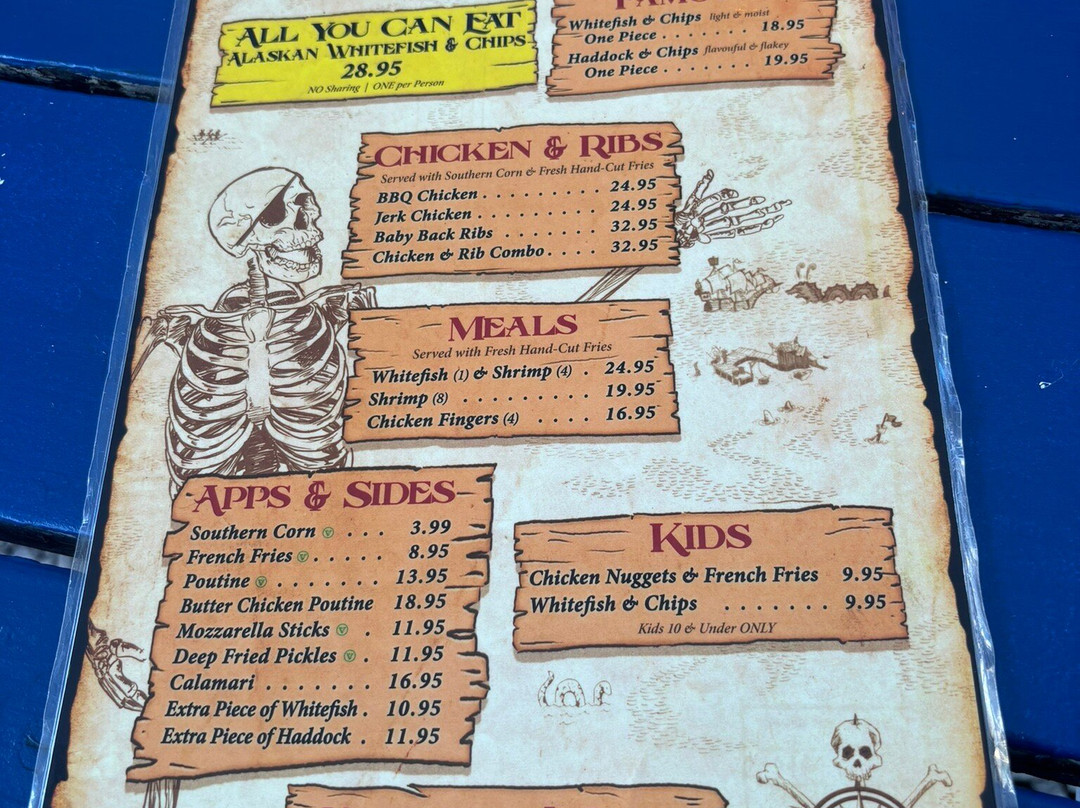 ALL YOU CAN EAT
ALASKAN WHITEFISH & CHIPS
28.95
NO Sharing | ONE per Person
Whitefish & Chips light & moist
One Piece . . . . . . . . 18.95
Haddock & Chips flavouful & flakey
One Piece . . . . . . . . 19.95
CHICKEN & RIBS
Served with Southern Corn & Fresh Hand-Cut Fries
BBQ Chicken . . . . . . . . 24.95
Jerk Chicken . . . . . . . . 24.95
Baby Back Ribs . . . . . . . 32.95
Chicken & Rib Combo . . . . 32.95
MEALS
Served with Fresh Hand-Cut Fries
Whitefish (1) & Shrimp (4) . 24.95
Shrimp (8) . . . . . . . . . 19.95
Chicken Fingers (4) . . . . 16.95
APPS & SIDES
Southern Corn . . . 3.99
French Fries . . . . . 8.95
Poutine . . . . . . . 13.95
Butter Chicken Poutine 18.95
Mozzarella Sticks . 11.95
Deep Fried Pickles . 11.95
Calamari . . . . . . . 16.95
Extra Piece of Whitefish . 10.95
Extra Piece of Haddock . 11.95
KIDS
Chicken Nuggets & French Fries 9.95
Whitefish & Chips . . . . . . . 9.95
Kids 10 & Under ONLY